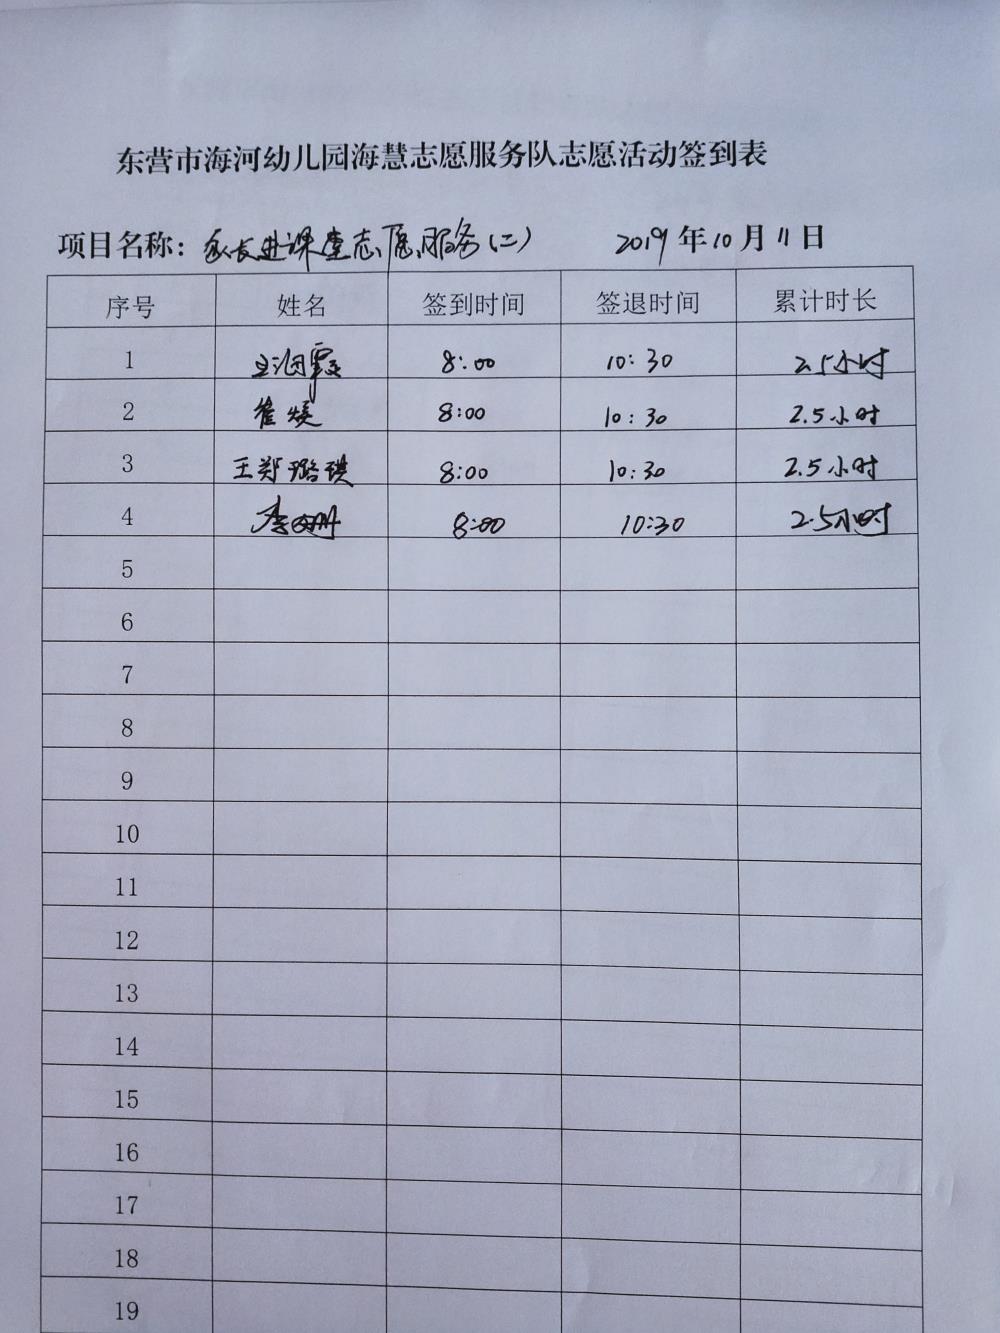 东营市海河幼儿园海慧志愿服务队志愿活动签到表
项目名称：家长进课堂志愿服务（二） 2019年10月11日
序号 姓名 签到时间 签退时间 累计时长
1 王 8:00 10:30 2.5小时
2 崔 8:00 10:30 2.5小时
3 王郑璐琪 8:00 10:30 2.5小时
4 李 8:00 10:30 2.5小时
5
6
7
8
9
10
11
12
13
14
15
16
17
18
19